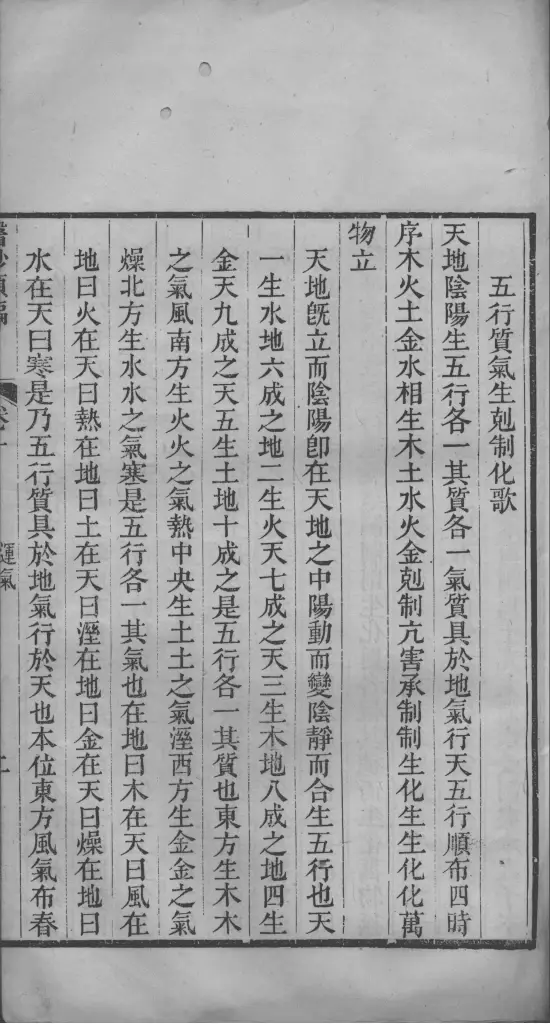 五行質氣生剋制化歌
天地陰陽生五行各一其質各一氣質具於地氣行天五行順布四時
序木火土金水相生木土水火金剋制亢害承制制生化生生化化萬
物立
天地旣立而陰陽卽在天地之中陽動而變陰靜而合生五行也天
一生水地六成之地二生火天七成之天三生木地八成之地四生
金天九成之天五生土地十成之是五行各一其質也東方生木木
之氣風南方生火火之氣熱中央生土土之氣溼西方生金金之氣
燥北方生水水之氣寒是五行各一其氣也在地曰木在天曰風在
地曰火在天曰熱在地曰土在天曰溼在地曰金在天曰燥在地曰
水在天曰寒是乃五行質具於地氣行於天也本位東方風氣布春
運氣